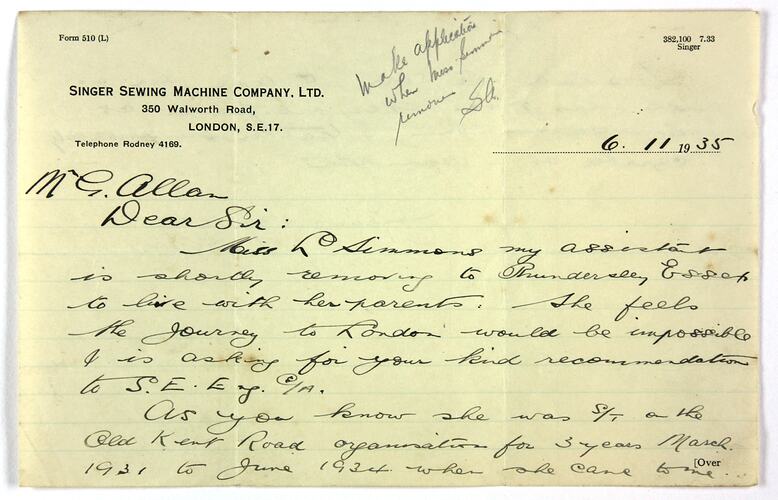 Form 510 (L)
382,100 7.33
Singer
Make application
when Miss Simmons
removes SA.
SINGER SEWING MACHINE COMPANY, LTD.
350 Walworth Road,
LONDON, S.E.17.
Telephone Rodney 4169.
6. 11 1935
Mr G. Allan
Dear Sir:
Miss L Simmons my assistant
is shortly removing to Thundersley Essex
to live with her parents. She feels
the journey to London would be impossible
& is asking for your kind recommendation
to S. E. Eng. C/A.
As you know she was S/T on the
Old Kent Road organisation for 3 years March
1931 to June 1934 when she came to me
[Over